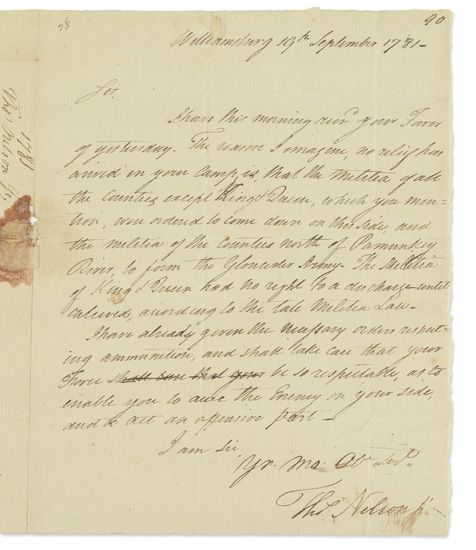 90
Williamsburg 19th September 1781-
Sir,
I have this morning recd your Favor
of yesterday. The reason I imagine, no relief has
arrived in your Camp, is, that the Militia of all
the Counties except King & Queen, which you men-
tion, were ordered to come down on this side, and
the Militia of the Counties north of Pamunkey
River, to form the Gloucester Army. The Militia
of King & Queen had no right to a discharge until
relieved, according to the late Militia Law.
I have already given the necessary orders respect-
ing ammunition, and shall take care that your
Force shall be so respectable, as to
enable you to awe the Enemy on your side,
and to act an offensive part-
I am Sir
Yr. Mo. Ob. Servt.
Ths. Nelson jr.
1781
Ths. Nelson Jr.